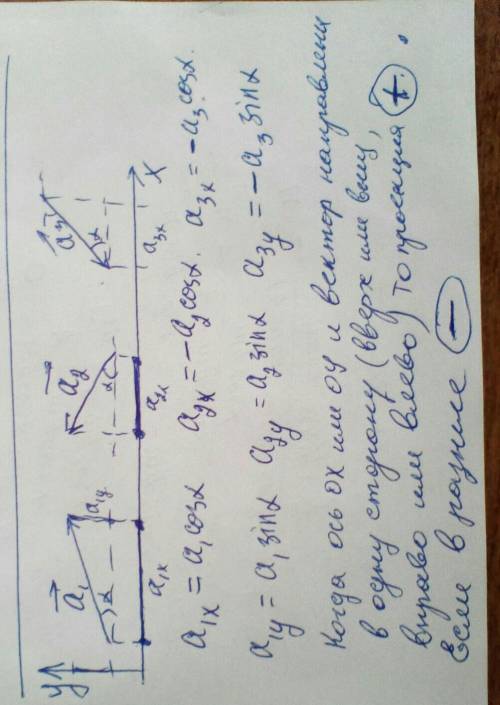 y
a₁ α a₁y
a₂ α
a₃ α
a₁x a₂x a₃x x
a₁x = a₁cosα a₂x = −a₂cosα. a₃x = −a₃cosα.
a₁y = a₁sinα a₂y = a₂sinα a₃y = −a₃sinα
Когда ось ОХ или ОУ и вектор направлены
в одну сторону (вверх или вниз,
вправо или влево) то проекция +.
Если в разные −